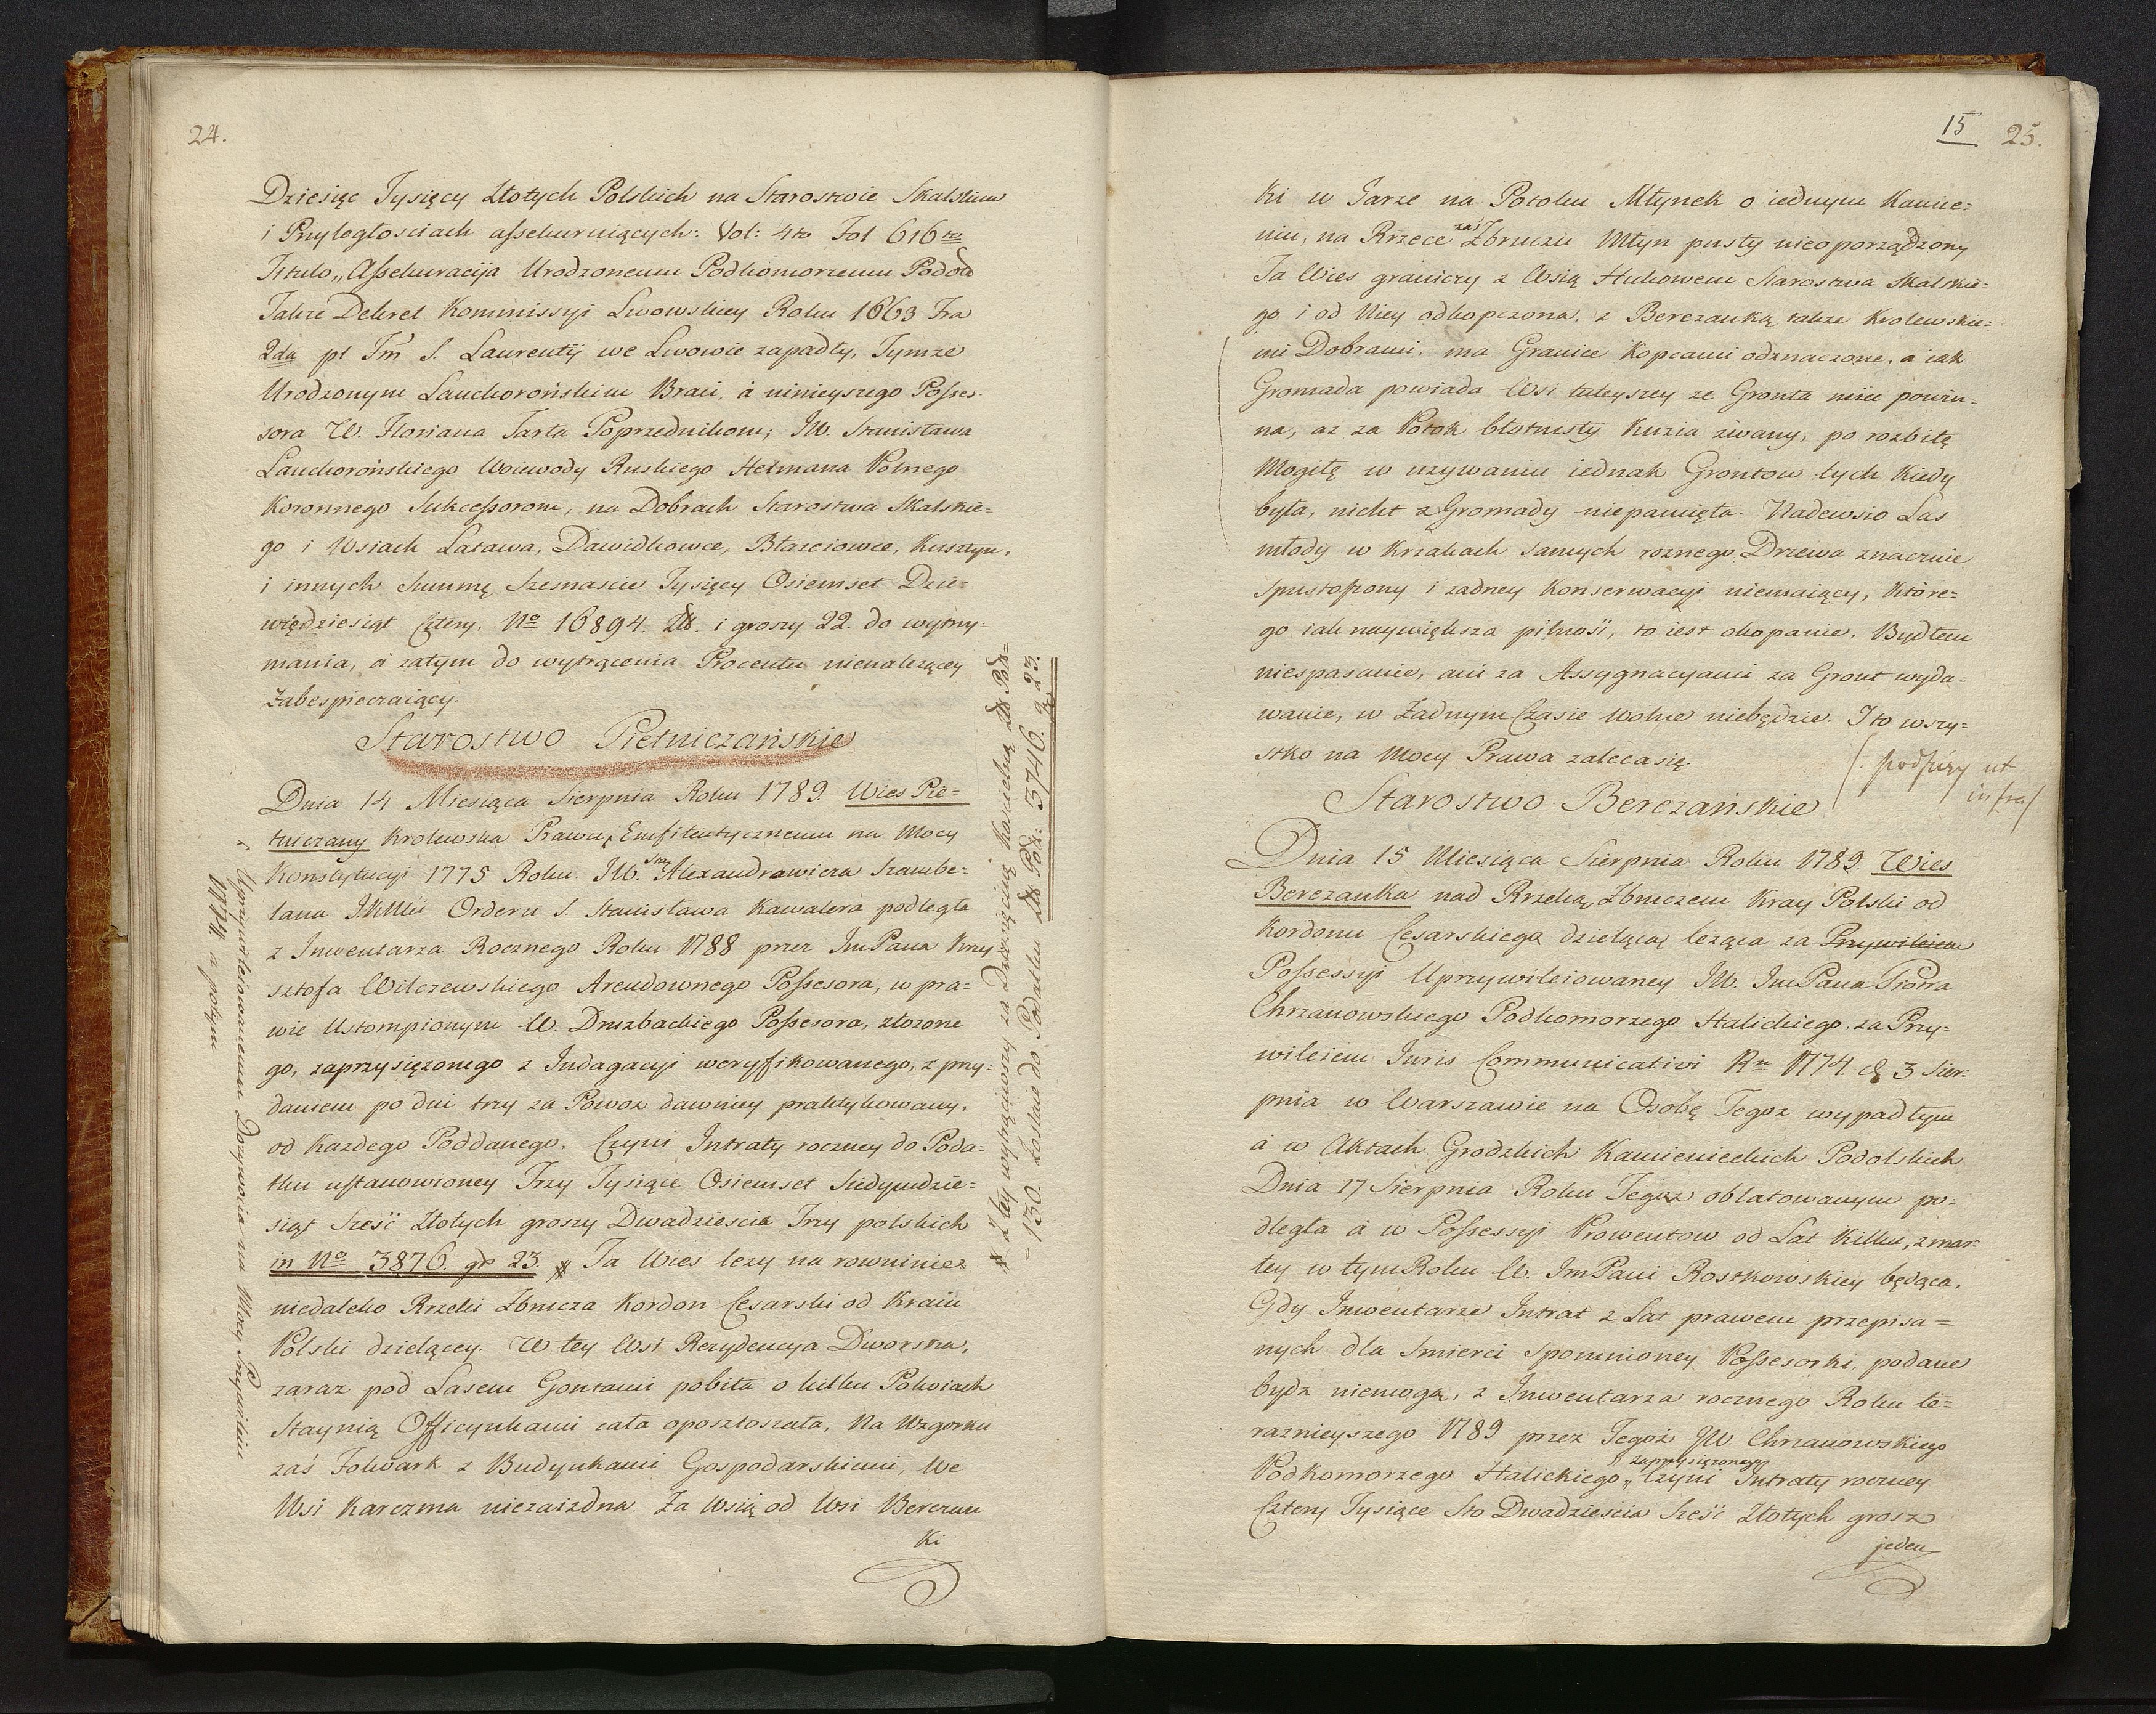 24.
Dziesięc Tysięcy Złotych Polskich na Starostwie Skalskim
i Przyległosciach assekuruiących: Vol: 4to Fol 616to
Titulo „Assekuracyja Urodzonemu Podkomorzemu Podol
Takze Dekret Kommissyi Lwowskiey Roku 1663 Fra
2da pt Fm S. Laurentij we Lwowie zapadły, Tymze
Urodzonym Lanckorońskim Braci, á ninieyszego Posses-
sora W. Floriana Tarła Poprzednikom, JW. Stanisława
Lanckorońskiego Woiewody Ruskiego Hetmana Polnego
Koronnego Sukcessorom, na Dobrach Starostwa Skalskie=
go i Wsiach Latawa, Dawidkowce, Błazeiowce, Kusztyn,
i innych Summę Szesnascie Tysięcy Osiemset Dzie=
więdziesiąt Cztery. No 16894. Zł. i groszy 22. do wytrzy-
mania, á zatym do wytrącenia Procentu nienalezącey
Zabespieczaiący.
Starostwo Pietniczańskie
Dnia 14 Miesiąca Sierpnia Roku 1789. Wies Pie=
tniczany Krolewska Prawu Emfiteutycznemu na Mocy
Konstytucyi 1775 Roku JW. Alexandrowicza Szambe=
lana JKMci Orderu S. Stanisława Kawalera podległa
z Inwentarza Rocznego Roku 1788 przez ImPana Krzy
sztofa Wilczewskiego Arendownego Possesora, w pra=
wie Ustompionym W. Druzbackiego Possesora, złozone
go, zaprzysięzonego z Indagacyi weryfikowanego, z przy=
daniem po dni trzy za Powoz dawniey praktykowany,
od kazdego Poddanego. Czyni Intraty roczney do Poda=
tku ustanowioney Trzy Tysiące Osiemset Siedymdzie=
siąt Sześć Złotych groszy Dwadziescia Trzy polskich
in No 3876. gr 23. Ta Wies lezy na rowninie
niedaleko Rzeki Zbrucza Kordon Cesarski od Kraiu
Polski dzielącey. W tey Wsi Rezydencya Dworska,
zaraz pod Lasem Gontami pobita o kilku Pokoiach
Staynią Officynkami cała oposztoszała, Na Wzgorku
zaś Folwark z Budynkami Gospodarskiemi, We
Wsi Karczma niezaiezdna. Za Wsią od Wsi Berezan
ki
Uprzywileiowanemu Dozywocia na Mocy Przywileiu
1774 a potym
Z tey wytrąciwszy za Dziesięcinę Koscielną Zł Pol=
– 130. Zostaie do Podatku Zł Pol: 3746. g 23.
15 25.
ki w Jarze na Potoku Młynek o iednym Kamie=
niu, na Rzece zaś Zbruczu Młyn pusty nieoporządzony
Ta Wies graniczy z Wsią Hukowem Starostwa Skalskie=
go i od Niey odkopczona, z Berezanką takze Krolewskie=
mi Dobrami, ma Granice Kopcami odznaczone, a iak
Gromada powiada Wsi tuteyszey ze Gronta miec powin=
na, az za Potok błotnisty Kuzia zwany, po rozbitę
Mogiłę w uzywaniu iednak Grontow tych kiedy
była, nicht z Gromady niepamięta. Nadewsio Las
młody w Krzakach samych roznego Drzewa znacznie
spustoszony i zadney Konserwacyi niemaiący, Które=
go iak naywiększa pilność, to iest okopanie, Bydłem
niespasanie, ani za Assygnacyami za Gront wyda=
wanie, w Żadnym Czasie wolne niebędzie. I to wszy=
stko na Mocy Prawa zaleca się.
/. podpisy ut
infra/
Starostwo Berezańskie
Dnia 15 Miesiąca Sierpnia Roku 1789. Wies
Berezanka nad Rzeką Zbruczem Kray Polski od
Kordonu Cesarskiego dzielącą leząca za Przywileiem
Possessyi Uprzywileiowaney JW. ImPana Piotra
Chrzanowskiego Podkomorzego Halickiego za Przy=
wileiem Juris Communicativi Ru 1774. d 3 Sier:
pnia w Warszawie na Osobę Tegoz wypadłym
á w Aktach Grodzkich Kamienieckich Podolskich
Dnia 17 Sierpnia Roku Tegoz oblatowanym po=
dległa á w Possessyi Prowentow od Lat kilku, zmar:
łey w tym Roku W. ImPani Rostkowskiey będąca.
Gdy Inwentarze Intrat z Lat prawem przepisa=
nych dla Smierci Spomnioney Possesorki, podane
bydz niemogą, z Inwentarza rocznego Roku te=
raznieyszego 1789 przez Tegoż JW. Chrzanowskiego
Podkomorzego Halickiego „ zaprzysięzonego Czyni Intraty roczney
Cztery Tysiące Sto Dwadziescia Sześć Złotych grosz
jeden